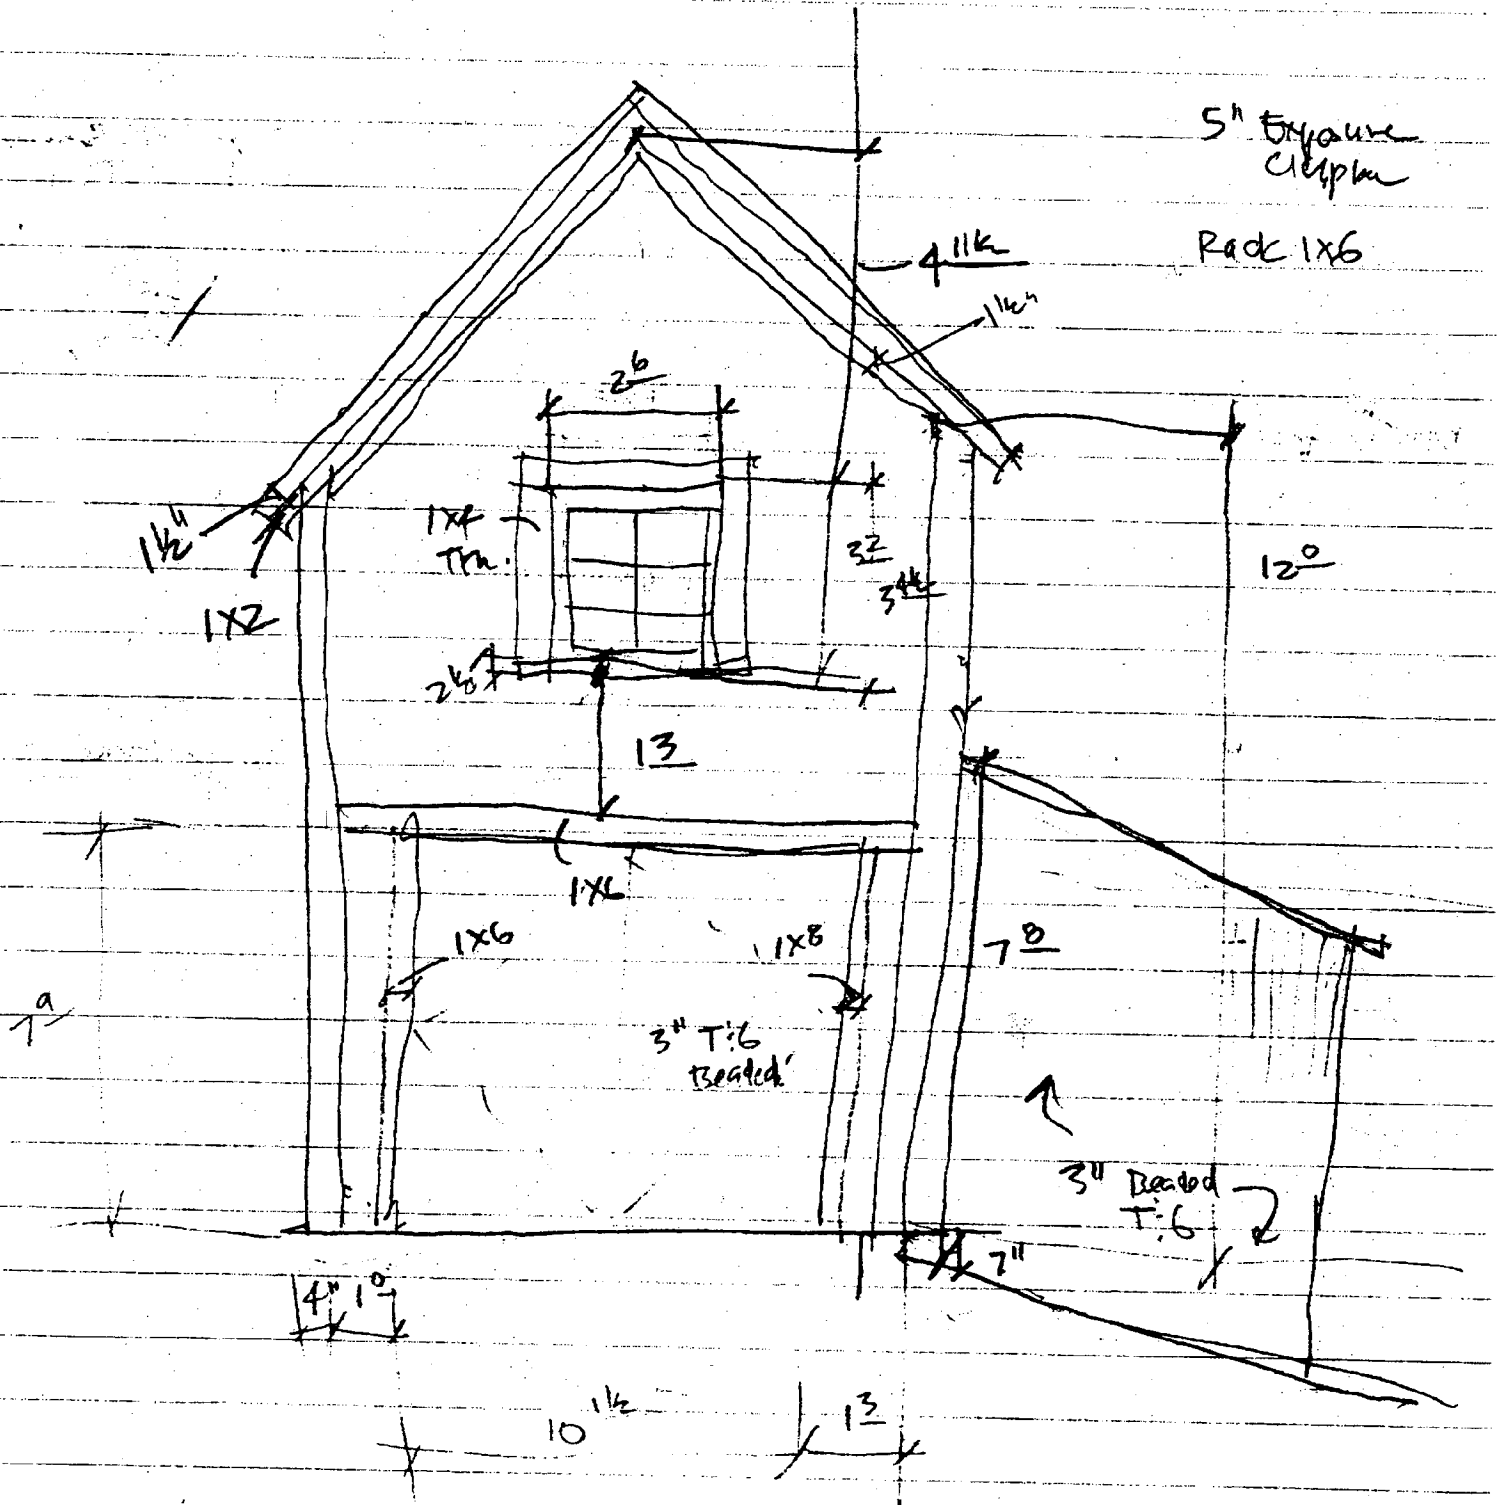 5" Exposure
Rack 1x6
4 11½
1½"
2 6
12 0
1x4
Trim.
3 2
3 4½
1½"
1x2
2½
13
1x6
1x6
1x8
7 8
3" T:6
Beaded
3" Beaded
T:6
7"
4" 1 0
10 1½
1 3